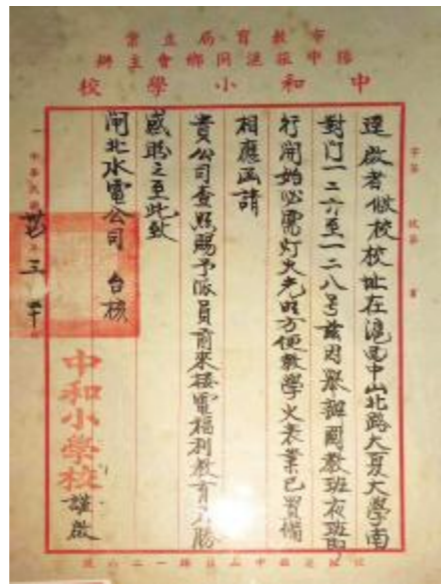 市教育局立案
旅滬同鄉會主辦
中和小學校
字第 號第 頁
逕啟者敝校校址在滬西中山北路大夏大學南
對门一二六至一二八号茲因舉辦國教班夜班即
行開始必需灯火光明方便教學火表業已買備
相應函請
貴公司查照賜予派員前來接電福利教育不勝
感盼之至此致
閘北水電公司 台核
中和小學校 謹啟
中華民國 三